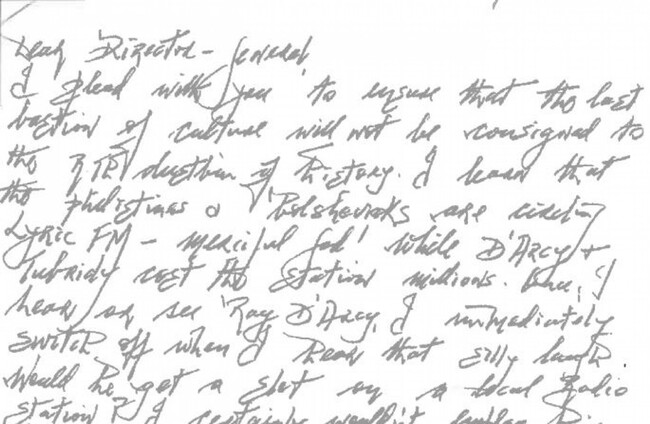 Dear Director-General
I plead with you to ensure that the last
bastion of culture will not be consigned to
the RTE dustbin of history. I learn that
the philistines & Bolsheviks are circling
Lyric FM - merciful God! while D'Arcy +
Tubridy cost the station millions. Once, I
hear or see Ray D'Arcy, I immediately
switch off when I hear that silly laugh.
Would he get a slot on a local radio
station? I certainly wouldn't